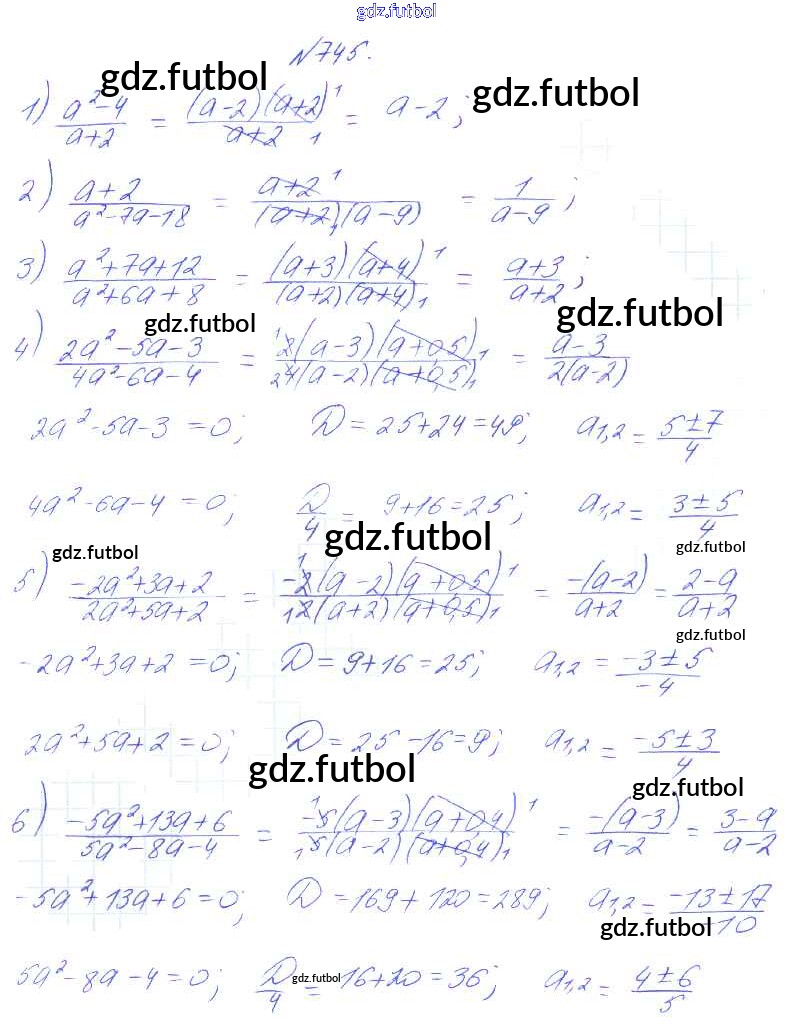 gdz.futbol
N745.
gdz.futbol
gdz.futbol
1) (a²-4)/(a+2) = ((a-2)(a+2)¹)/(a+2 ₁) = a-2;
2) (a+2)/(a²-7a-18) = (a+2 ¹)/((a+2)₁(a-9)) = 1/(a-9);
3) (a²+7a+12)/(a²+6a+8) = ((a+3)(a+4)¹)/((a+2)(a+4)₁) = (a+3)/(a+2);
gdz.futbol
gdz.futbol
4) (2a²-5a-3)/(4a²-6a-4) = (¹2(a-3)(a+0,5)¹)/(₂4(a-2)(a+0,5)₁) = (a-3)/(2(a-2))
2a²-5a-3=0; D=25+24=49; a₁,₂ = (5±7)/4
4a²-6a-4=0; D/4 = 9+16=25; a₁,₂ = (3±5)/4
gdz.futbol
gdz.futbol
gdz.futbol
5) (-2a²+3a+2)/(2a²+5a+2) = (-2¹(a-2)(a+0,5)¹)/(₁2(a+2)(a+0,5)₁) = (-(a-2))/(a+2) = (2-a)/(a+2)
gdz.futbol
-2a²+3a+2=0; D=9+16=25; a₁,₂ = (-3±5)/(-4)
2a²+5a+2=0; D=25-16=9; a₁,₂ = (-5±3)/4
gdz.futbol
gdz.futbol
6) (-5a²+13a+6)/(5a²-8a-4) = (-5¹(a-3)(a+0,4)¹)/(₁5(a-2)(a+0,4)₁) = (-(a-3))/(a-2) = (3-a)/(a-2)
-5a²+13a+6=0; D=169+120=289; a₁,₂ = (-13±17)/(-10)
gdz.futbol
5a²-8a-4=0; D/4 = 16+20=36; a₁,₂ = (4±6)/5
gdz.futbol